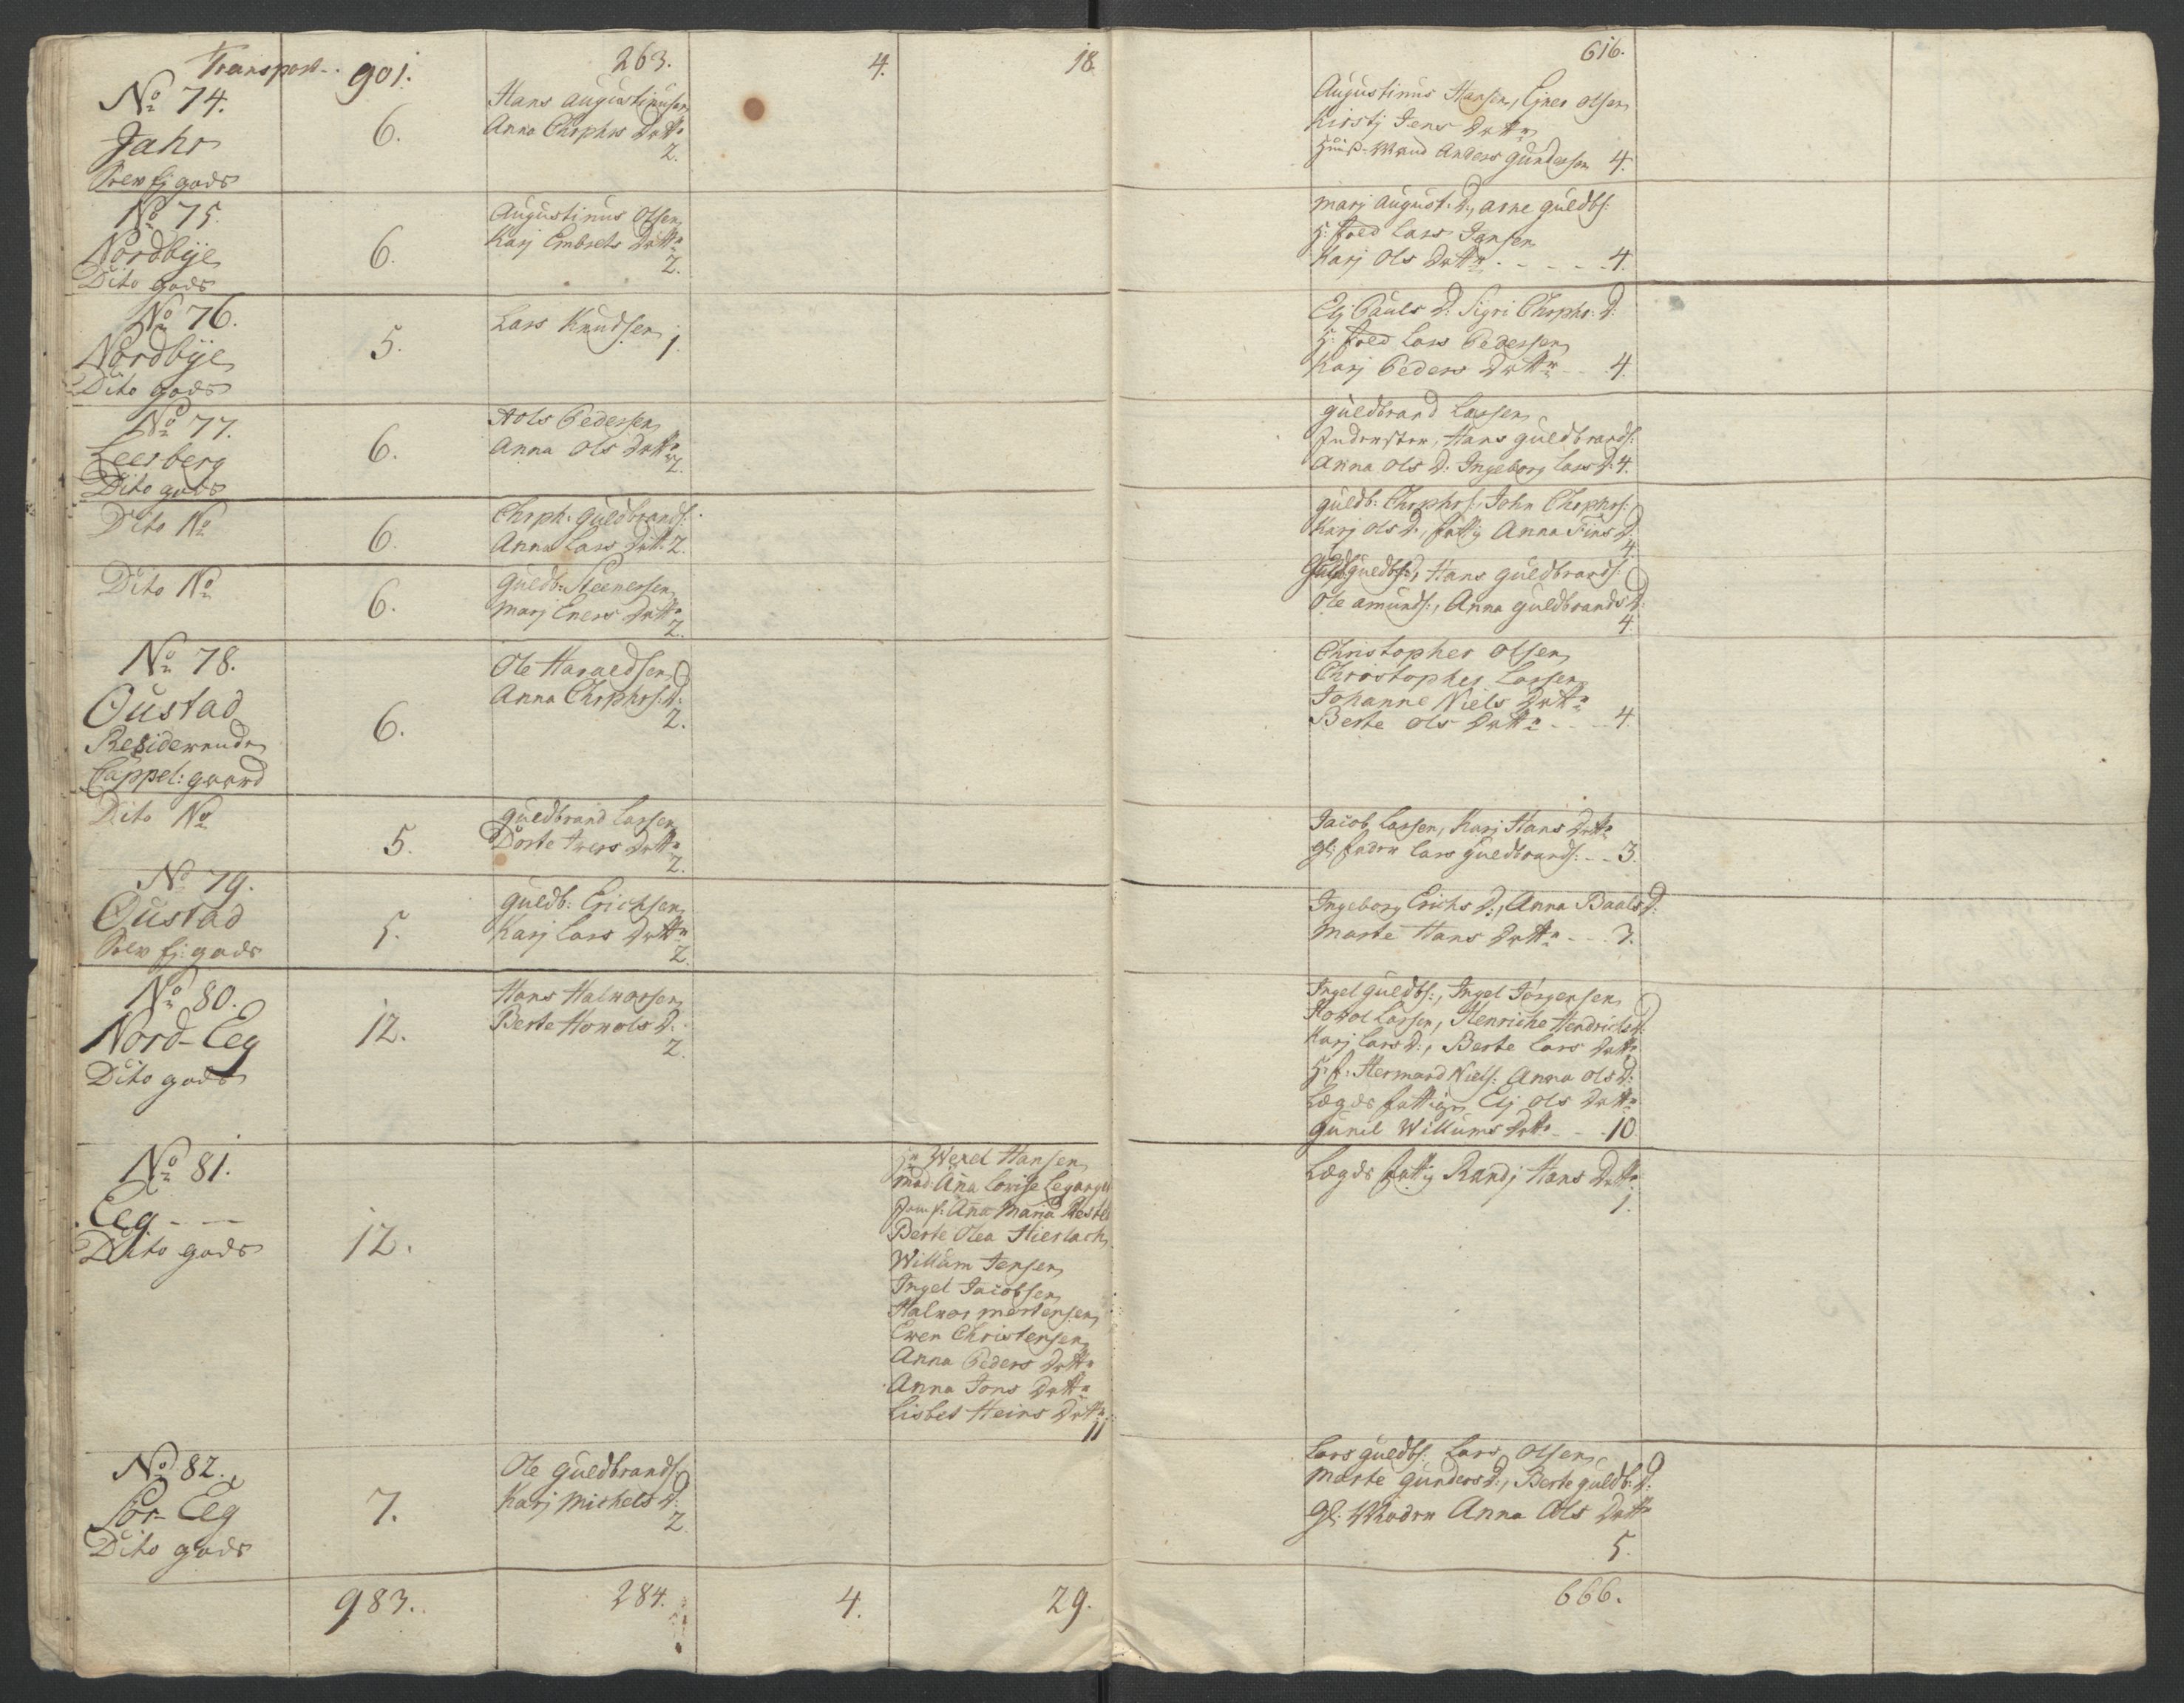 Transport. 901. 263. 4. 18. 616.
No 74.
Jahr
gods
6.
Hans Augustinusen
Anna Chrphrs Datt.
2.
Augustinus Hansen, Ejner Olsen
Kirstj Jens Datt.
Huus-Mand Anders Gundersen 4.
No 75.
Nordbÿe
Dito gods
6.
Augustinus Olsen
Karj Embrets Datt.
2.
Marj August: D., Arne Guldbs:
H: fold Lars Jensen
Karj Ols Datt. - - - - 4.
No 76.
Nordbÿe
Dito gods
5.
Lars Knudsen
1.
Elj Pauls D: Sigri Chrphr: D:
H: fold Lars Pedersen
Karj Peders Datt. - - 4.
No 77.
Leerberg
Dito gods
6.
Hols Pedersen
Anna Ols Datt.
2.
Guldbrand Larsen
Hans Guldbrands:
Anna Ols D: Ingeborg Lars D: 4.
Dito No
6.
Chrph: Guldbrands:
Anna Lars Datt. 2.
Guldb: Chrphrs:, John Chrphrs:,
Karj Ols D:, fattig Anna Fins D:
4.
Dito No
6.
Guldb: Steenersen
Marj Eners Datt.
2.
Guldbs:, Hans Guldbrands:
Ole Amunds:, Anna Guldbrands D:
4.
No 78.
Oustad
Residerende
Cappel: gaard
6.
Ole Haraldsen
Anna Chrphrs: D:
2.
Christopher Olsen
Christopher Larsen
Johanne Niels Datt.
Berte Ols Datt. - - - 4.
Dito No
5.
Guldbrand Larsen
Dorte Iwers Datt.
2.
Jacob Larsen, Karj Hans Datt.
gl: fader Lars Guldbrands: - - 3.
No 79.
Oustad
gods
5.
Guldb: Erichsen
Karj Lars Datt.
2.
Ingeborg Erichs D:, Anna Baals D:
Marte Hans Datt. - - 3.
No 80.
Nord-Eeg
Dito gods
12.
Hans Halworsen
Berte Howols D:
2.
Ingel Guldbs:, Ingel Jörgensen
Howol Larsen, Henriche Hendrichs D:
Karj Lars D:, Berte Lars Datt.
H: f: Hermand Niels: Anna Ols D:
Lægds fattige Elj Ols Datt.
Gunil Willums Datt. - - 10
No 81.
Eeg - -
Dito gods
12.
Hr Wexel Hansen
Mad: Ana Lovise Legangr
Jomf: Ana Maria
Berte Olea Hierlach
Willum Jensen
Ingel Jacobsen
Halwor Mortensen
Ewen Christensen
Anna Peders Datt.
Anna Jons Datt.
Lisbet Heins Datt.
11
Lægds fattig Randj Hans Datt.
1.
No 82.
Sör-Eeg
Dito gods
7.
Ole Guldbrands:
Karj Michels D:
2
Lars Guldbs: Lars Olsen
Marte Gunders D:, Berte Guldb: D:
Gl: Moder Anna Ols Datt.
5.
983. 284. 4. 29. 666.